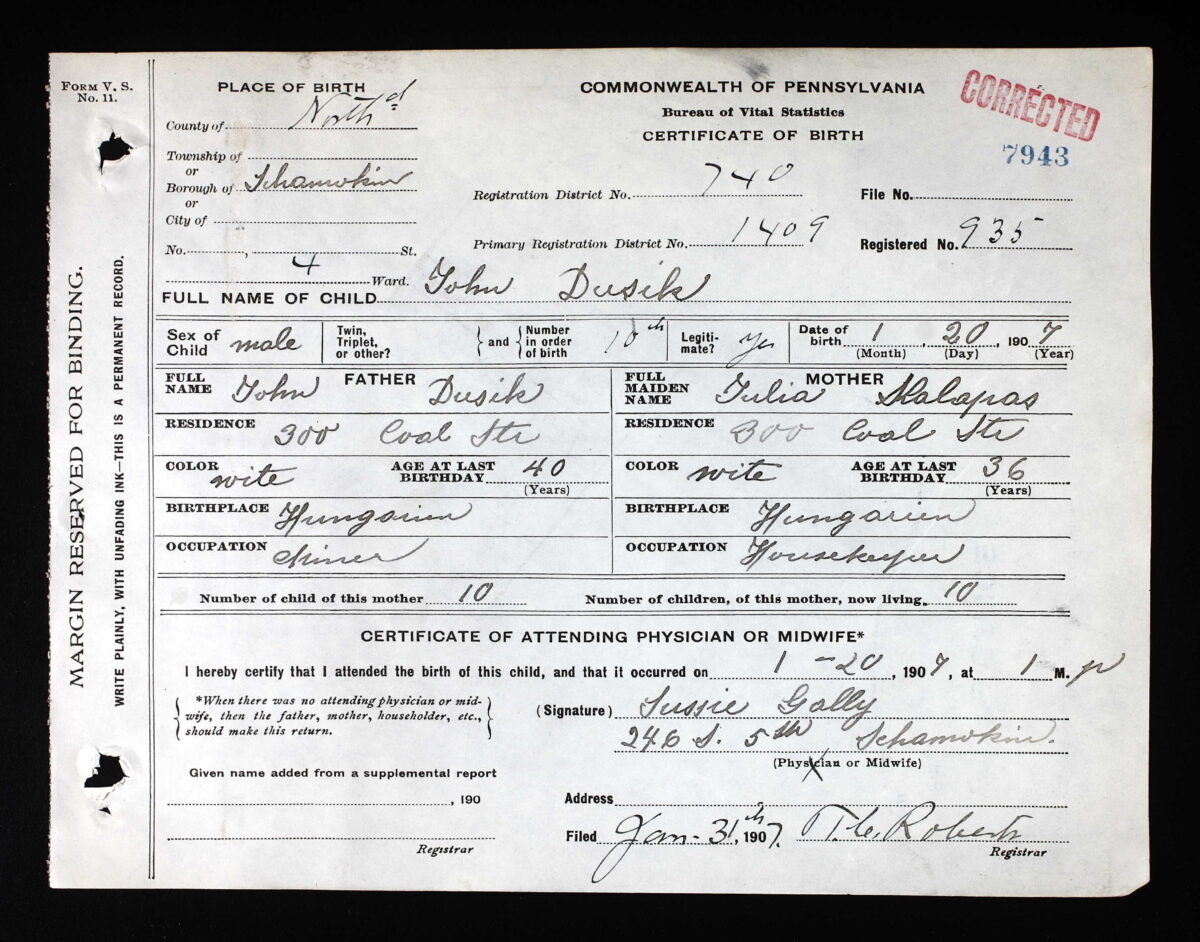 FORM V. S.
No. 11.
MARGIN RESERVED FOR BINDING.
WRITE PLAINLY, WITH UNFADING INK—THIS IS A PERMANENT RECORD.
PLACE OF BIRTH
County of North'd
Township of
or
Borough of Schamokin
or
City of
No. , St.
4 Ward.
COMMONWEALTH OF PENNSYLVANIA
Bureau of Vital Statistics
CERTIFICATE OF BIRTH
CORRECTED
7943
Registration District No. 740
File No.
Primary Registration District No. 1409
Registered No. 935
FULL NAME OF CHILD John Dusik
Sex of Child male
Twin, Triplet, or other?
and
Number in order of birth 10th
Legiti- mate? yes
Date of birth 1, 20, 1907
(Month) (Day) (Year)
FATHER
FULL NAME John Dusik
RESIDENCE 300 Coal Str
COLOR wite
AGE AT LAST BIRTHDAY 40
(Years)
BIRTHPLACE Hungarien
OCCUPATION Miner
MOTHER
FULL MAIDEN NAME Julia Skalapas
RESIDENCE 300 Coal Str
COLOR wite
AGE AT LAST BIRTHDAY 36
(Years)
BIRTHPLACE Hungarien
OCCUPATION Housekeyper
Number of child of this mother 10
Number of children, of this mother, now living 10
CERTIFICATE OF ATTENDING PHYSICIAN OR MIDWIFE*
I hereby certify that I attended the birth of this child, and that it occurred on 1-20, 1907, at 1 M. p
*When there was no attending physician or mid-
wife, then the father, mother, householder, etc.,
should make this return.
(Signature) Sussie Gally
246 S. 5th Schamokin.
(Physician or Midwife)
Given name added from a supplemental report
, 190
Registrar
Address
Filed Jan-31th 1907. T. C. Roberts
Registrar